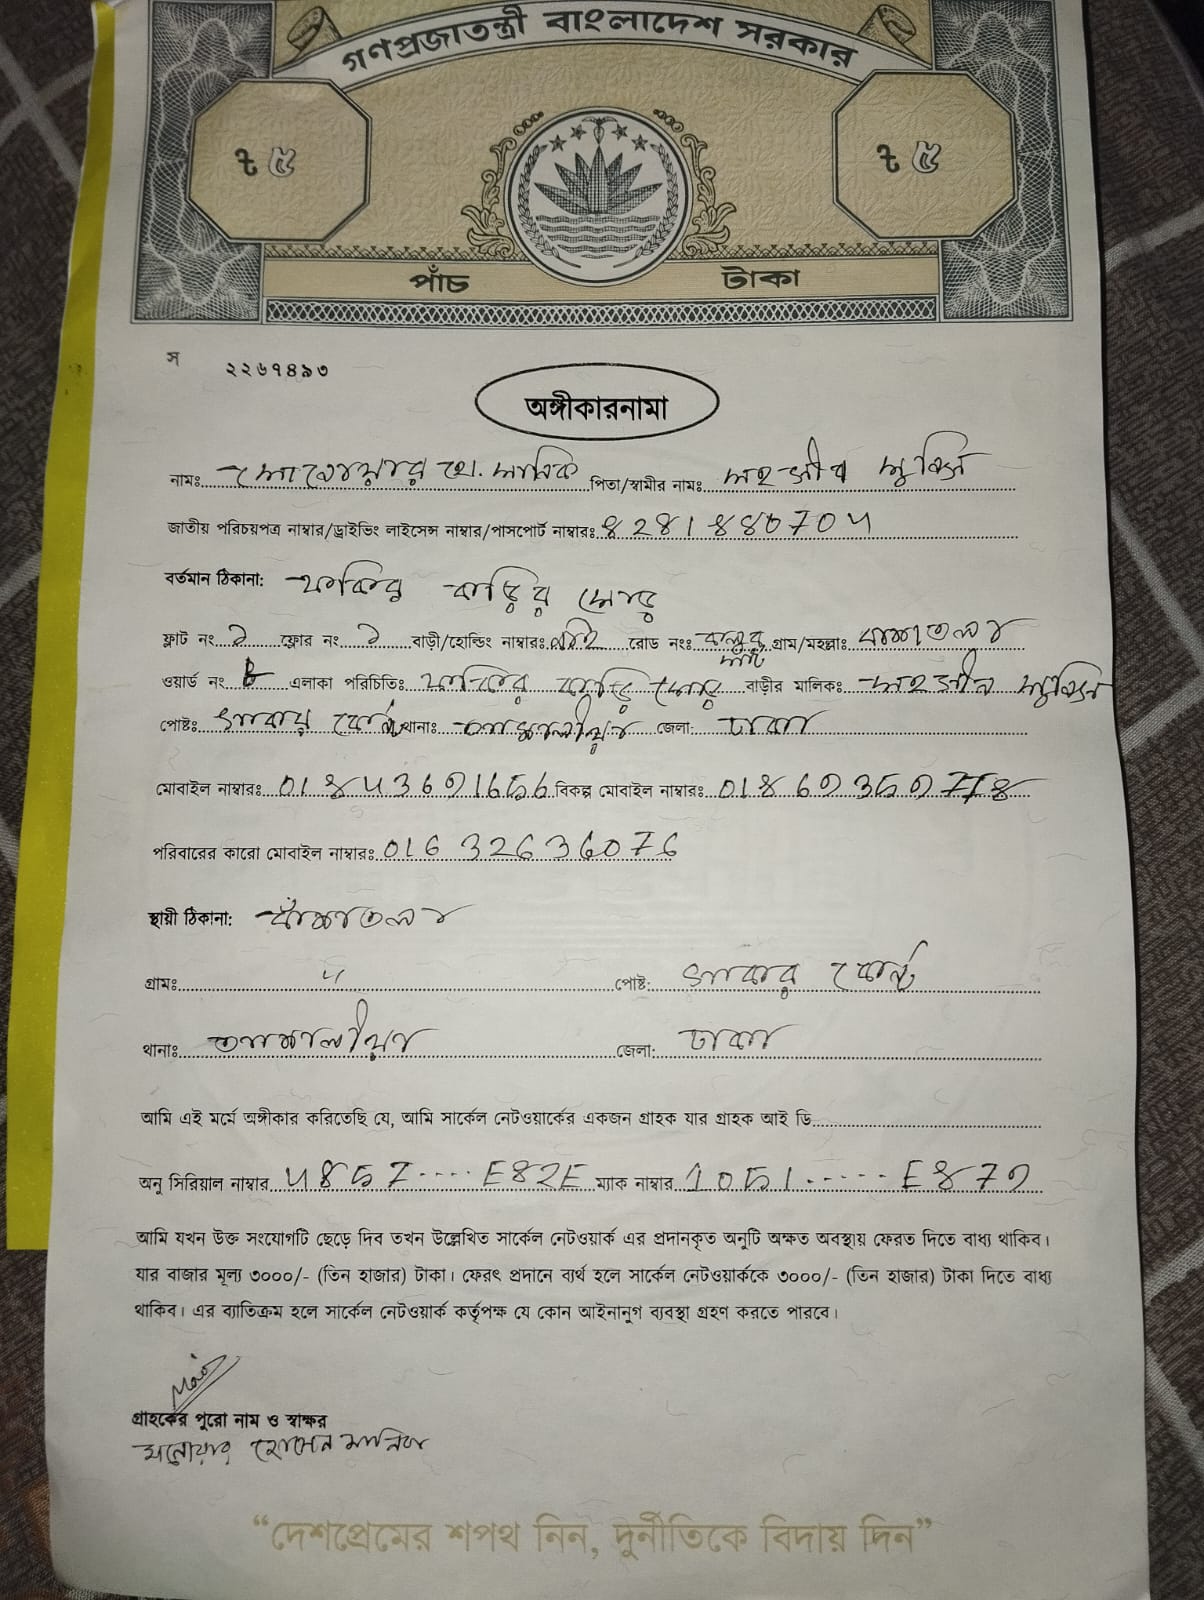 গণপ্রজাতন্ত্রী বাংলাদেশ সরকার
৳ ৫ ৳ ৫
পাঁচ টাকা
স ২২৬৭৪৯৩
অঙ্গীকারনামা
নামঃ মনোয়ার হো. মানিক পিতা/স্বামীর নামঃ
জাতীয় পরিচয়পত্র নাম্বার/ড্রাইভিং লাইসেন্স নাম্বার/পাসপোর্ট নাম্বারঃ
বর্তমান ঠিকানা: ফকির বাড়ির মোড়
ফ্লাট নং ফ্লোর নং বাড়ী/হোল্ডিং নাম্বারঃ রোড নংঃ বালুর মাঠ গ্রাম/মহল্লাঃ
ওয়ার্ড নং এলাকা পরিচিতিঃ ফকির বাড়ির মোড় বাড়ীর মালিকঃ
পোষ্টঃ থানাঃ জেলা: ঢাকা
মোবাইল নাম্বারঃ বিকল্প মোবাইল নাম্বারঃ
পরিবারের কারো মোবাইল নাম্বারঃ 016 32636076
স্থায়ী ঠিকানা:
গ্রামঃ " পোষ্ট:
থানাঃ জেলা: ঢাকা
আমি এই মর্মে অঙ্গীকার করিতেছি যে, আমি সার্কেল নেটওয়ার্কের একজন গ্রাহক যার গ্রাহক আই ডি
অনু সিরিয়াল নাম্বার E82E ম্যাক নাম্বার
আমি যখন উক্ত সংযোগটি ছেড়ে দিব তখন উল্লেখিত সার্কেল নেটওয়ার্ক এর প্রদানকৃত অনুটি অক্ষত অবস্থায় ফেরত দিতে বাধ্য থাকিব।
যার বাজার মূল্য ৩০০০/- (তিন হাজার) টাকা। ফেরৎ প্রদানে ব্যর্থ হলে সার্কেল নেটওয়ার্ককে ৩০০০/- (তিন হাজার) টাকা দিতে বাধ্য
থাকিব। এর ব্যাতিক্রম হলে সার্কেল নেটওয়ার্ক কর্তৃপক্ষ যে কোন আইনানুগ ব্যবস্থা গ্রহণ করতে পারবে।
গ্রাহকের পুরো নাম ও স্বাক্ষর
মনোয়ার হোসেন মানিক
“দেশপ্রেমের শপথ নিন, দুর্নীতিকে বিদায় দিন”